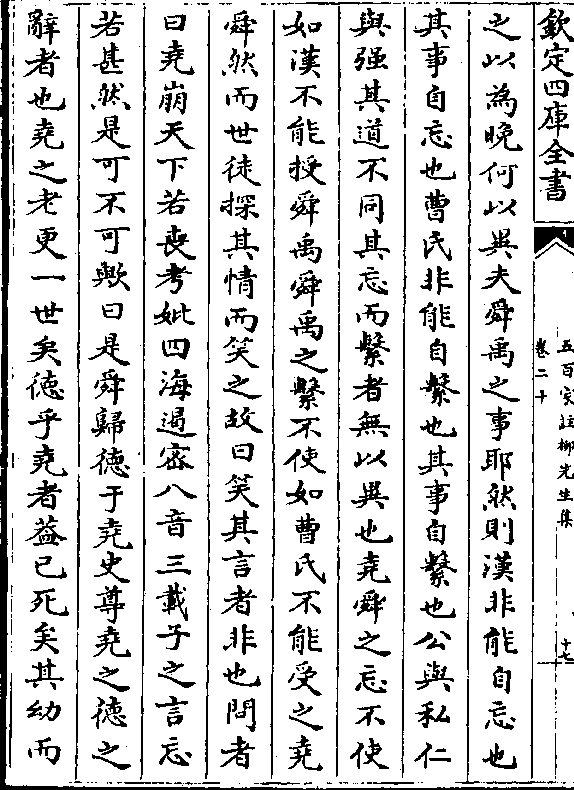 欽定四庫全書
五百家註柳先生集
卷二十
十七
之以為晚何以異夫舜禹之事耶然則漢非能自忘也
其事自忘也曹氏非能自繫也其事自繫也公與私仁
與强其道不同其忘而繫者無以異也堯舜之忘不使
如漢不能授舜禹舜禹之繫不使如曹氏不能受之堯
舜然而世徒探其情而笑之故曰笑其言者非也問者
曰堯崩天下若喪考妣四海遏密八音三載子之言忘
若甚然是可不可歟曰是舜歸德于堯史尊堯之德之
辭者也堯之老更一世矣德乎堯者葢已死矣其幼而